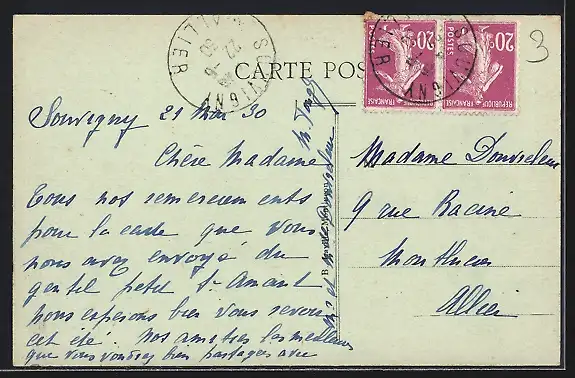 CARTE POS
SOUVIGNY
ALLIER
Souvigny 21 Mai 30
Chère Madame
Tous nos remerciements
pour la carte que vous
nous avez envoyé du
gentil petit St Amant
nous espérons bien vous revoir
cet été. Nos amitiés les meilleures
que vous voudrez bien partager avec
Mr
20c
POSTES
REPUBLIQUE FRANÇAISE
20c
POSTES
REPUBLIQUE FRANÇAISE
SOUVIGNY
ALLIER
3
Madame
9 rue Racine
Montlucon
Allier